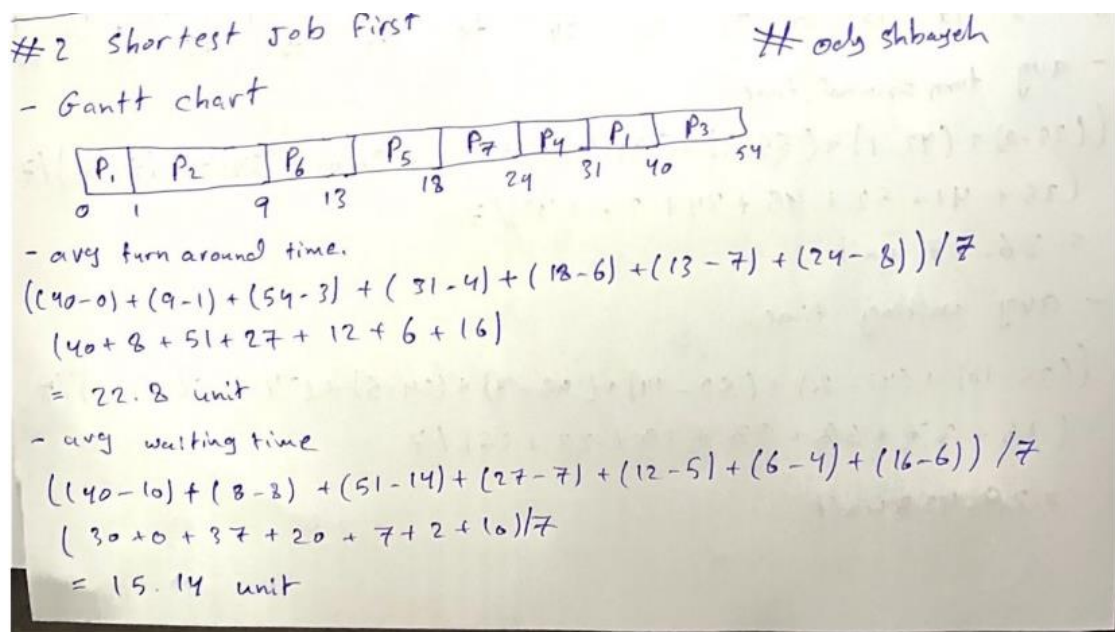 #2 Shortest Job First
# ody shbayeh
- Gantt chart
P1 P2 P6 P5 P7 P4 P1 P3
0 1 9 13 18 24 31 40 54
- avg turn around time.
((40-0)+(9-1)+(54-3)+(31-4)+(18-6)+(13-7)+(24-8))/7
(40+8+51+27+12+6+16)
= 22.8 unit
- avg waiting time
((40-10)+(8-8)+(51-14)+(27-7)+(12-5)+(6-4)+(16-6))/7
(30+0+37+20+7+2+10)/7
= 15.14 unit